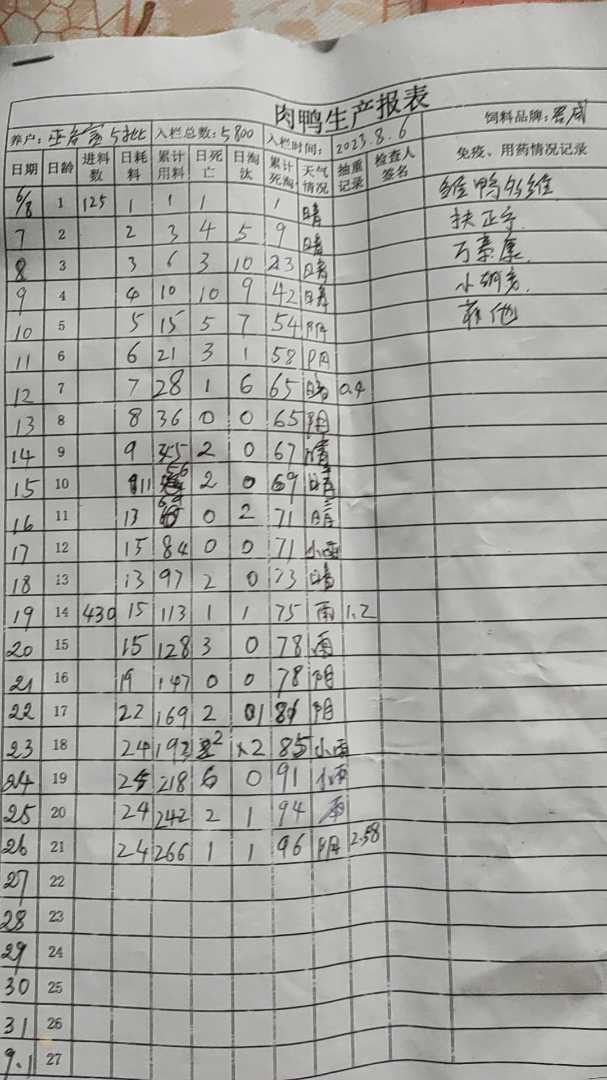 肉鸭生产报表
养户： 5批 入栏总数：5800 入栏时间：2023.8.6 饲料品牌：
日期 日龄 进料数 日耗料 累计用料 日死亡 日淘汰 累计死淘 天气情况 抽重记录 检查人签名 免疫、用药情况记录
6/8 1 125 1 1 1 1 晴
7 2 2 3 4 5 9 晴
8 3 3 6 3 10 23 晴
9 4 4 10 10 9 42 晴
10 5 5 15 5 7 54 阴
11 6 6 21 3 1 58 阴
12 7 7 28 1 6 65 晴 0.4
13 8 8 36 0 0 65 阴
14 9 9 45 2 0 67 晴
15 10 11 56 2 0 69 晴
16 11 13 69 0 2 71 晴
17 12 15 84 0 0 71 小雨
18 13 13 97 2 0 73 晴
19 14 430 15 113 1 1 75 雨 1.2
20 15 15 128 3 0 78 雨
21 16 19 147 0 0 78 阴
22 17 22 169 2 1 81 阴
23 18 24 193 2 2 85 小雨
24 19 25 218 6 0 91 小雨
25 20 24 242 2 1 94 雨
26 21 24 266 1 1 96 阴 2.58
27 22
28 23
29 24
30 25
31 26
9.1 27
扶正